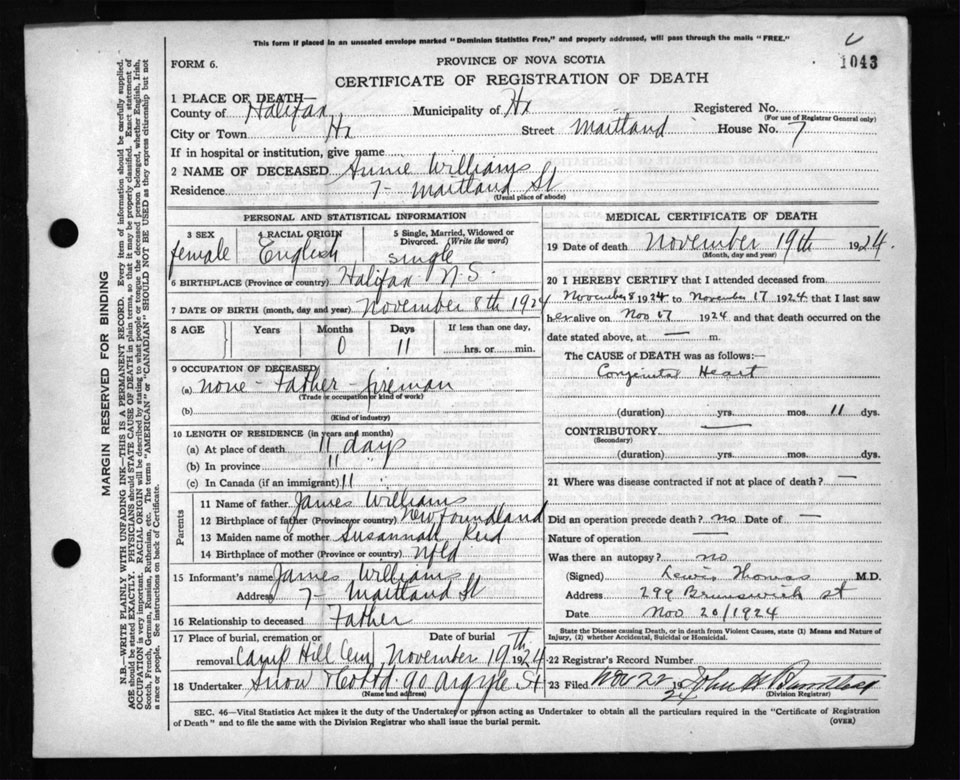 This form if placed in an unsealed envelope marked "Dominion Statistics Free," and properly addressed, will pass through the mails "FREE."
FORM 6.
PROVINCE OF NOVA SCOTIA
1043
CERTIFICATE OF REGISTRATION OF DEATH
1 PLACE OF DEATH—
County of Halifax Municipality of Hx Registered No.
(For use of Registrar General only)
City or Town Hx Street Maitland House No. 7
If in hospital or institution, give name
2 NAME OF DECEASED Annie Williams
Residence 7- Maitland St
(Usual place of abode)
PERSONAL AND STATISTICAL INFORMATION
3 SEX 4 RACIAL ORIGIN 5 Single, Married, Widowed or Divorced. (Write the word)
female English single
6 BIRTHPLACE (Province or country) Halifax N.S.
7 DATE OF BIRTH (month, day and year) November 8th 1924
8 AGE Years Months Days If less than one day,
0 11 hrs. or min.
9 OCCUPATION OF DECEASED
(a) none - Father - fireman
(Trade or occupation or kind of work)
(b)
(Kind of industry)
10 LENGTH OF RESIDENCE (in years and months)
(a) At place of death 11 days
(b) In province 11
(c) In Canada (if an immigrant) 11
Parents
11 Name of father James Williams
12 Birthplace of father (Province or country) Newfoundland
13 Maiden name of mother Susannah Reid
14 Birthplace of mother (Province or country) Nfld
15 Informant's name James Williams
Address 7- Maitland St
16 Relationship to deceased Father
17 Place of burial, cremation or removal Camp Hill Cem
Date of burial November 19th 1924
18 Undertaker Snow & Co Ltd. 90 Argyle St
(Name and address)
MEDICAL CERTIFICATE OF DEATH
19 Date of death November 19th 1924.
(Month, day and year)
20 I HEREBY CERTIFY that I attended deceased from
November 8 1924 to November 17 1924 that I last saw
her alive on Nov 17 1924 and that death occurred on the
date stated above, at — m.
The CAUSE of DEATH was as follows:—
Congenital Heart
(duration) yrs. mos. 11 dys.
CONTRIBUTORY —
(Secondary)
(duration) yrs. mos. dys.
21 Where was disease contracted if not at place of death? —
Did an operation precede death? no Date of —
Nature of operation —
Was there an autopsy? no
(Signed) Lewis Thomas M.D.
Address 299 Brunswick St
Date Nov 20/1924
State the Disease causing Death, or in death from Violent Causes, state (1) Means and Nature of
Injury, (2) whether Accidental, Suicidal or Homicidal.
22 Registrar's Record Number
23 Filed Nov 22 1924 John
(Division Registrar)
SEC. 46—Vital Statistics Act makes it the duty of the Undertaker or person acting as Undertaker to obtain all the particulars required in the "Certificate of Registration
of Death" and to file the same with the Division Registrar who shall issue the burial permit.
(OVER)
MARGIN RESERVED FOR BINDING
N.B.—WRITE PLAINLY WITH UNFADING INK—THIS IS A PERMANENT RECORD. Every item of information should be carefully supplied.
AGE should be stated EXACTLY. PHYSICIANS should STATE CAUSE OF DEATH in plain terms, so that it may be properly classified. Exact statement of
OCCUPATION is very important. RACIAL ORIGIN will be described by stating to what people or tongue the deceased person belonged, whether English, Irish,
Scotch, French, German, Russian, Ruthenian, etc. The terms "AMERICAN" or "CANADIAN" SHOULD NOT BE USED as they express citizenship but not
a race or people. See instructions on back of Certificate.